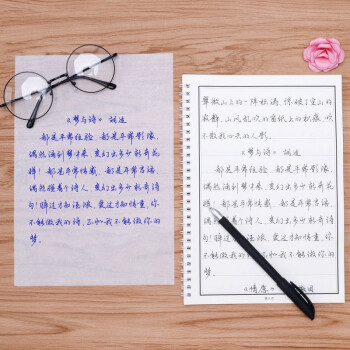 《梦与诗》 胡适
都是平常经验，都是平常影像，
偶然涌到梦中来，变幻出多少新奇花
样！都是平常情感，都是平常言语，
偶然碰着个诗人，变幻出多少新奇诗
句！醉过才知酒浓，爱过才知情重，你
不能做我的诗，正如我不能做你的
梦。
翠微山上的一阵松涛，惊破了空山的
寂静。山风吹乱的窗纸上的松痕，吹
不散我心头的人影。
《梦与诗》 胡适
都是平常经验，都是平常影像，
偶然涌到梦中来，变幻出多少新奇花
样！都是平常情感，都是平常言语，
偶然碰着个诗人，变幻出多少新奇诗
句！醉过才知酒浓，爱过才知情重，你
不能做我的诗，正如我不能做你的
梦。
《情愿》